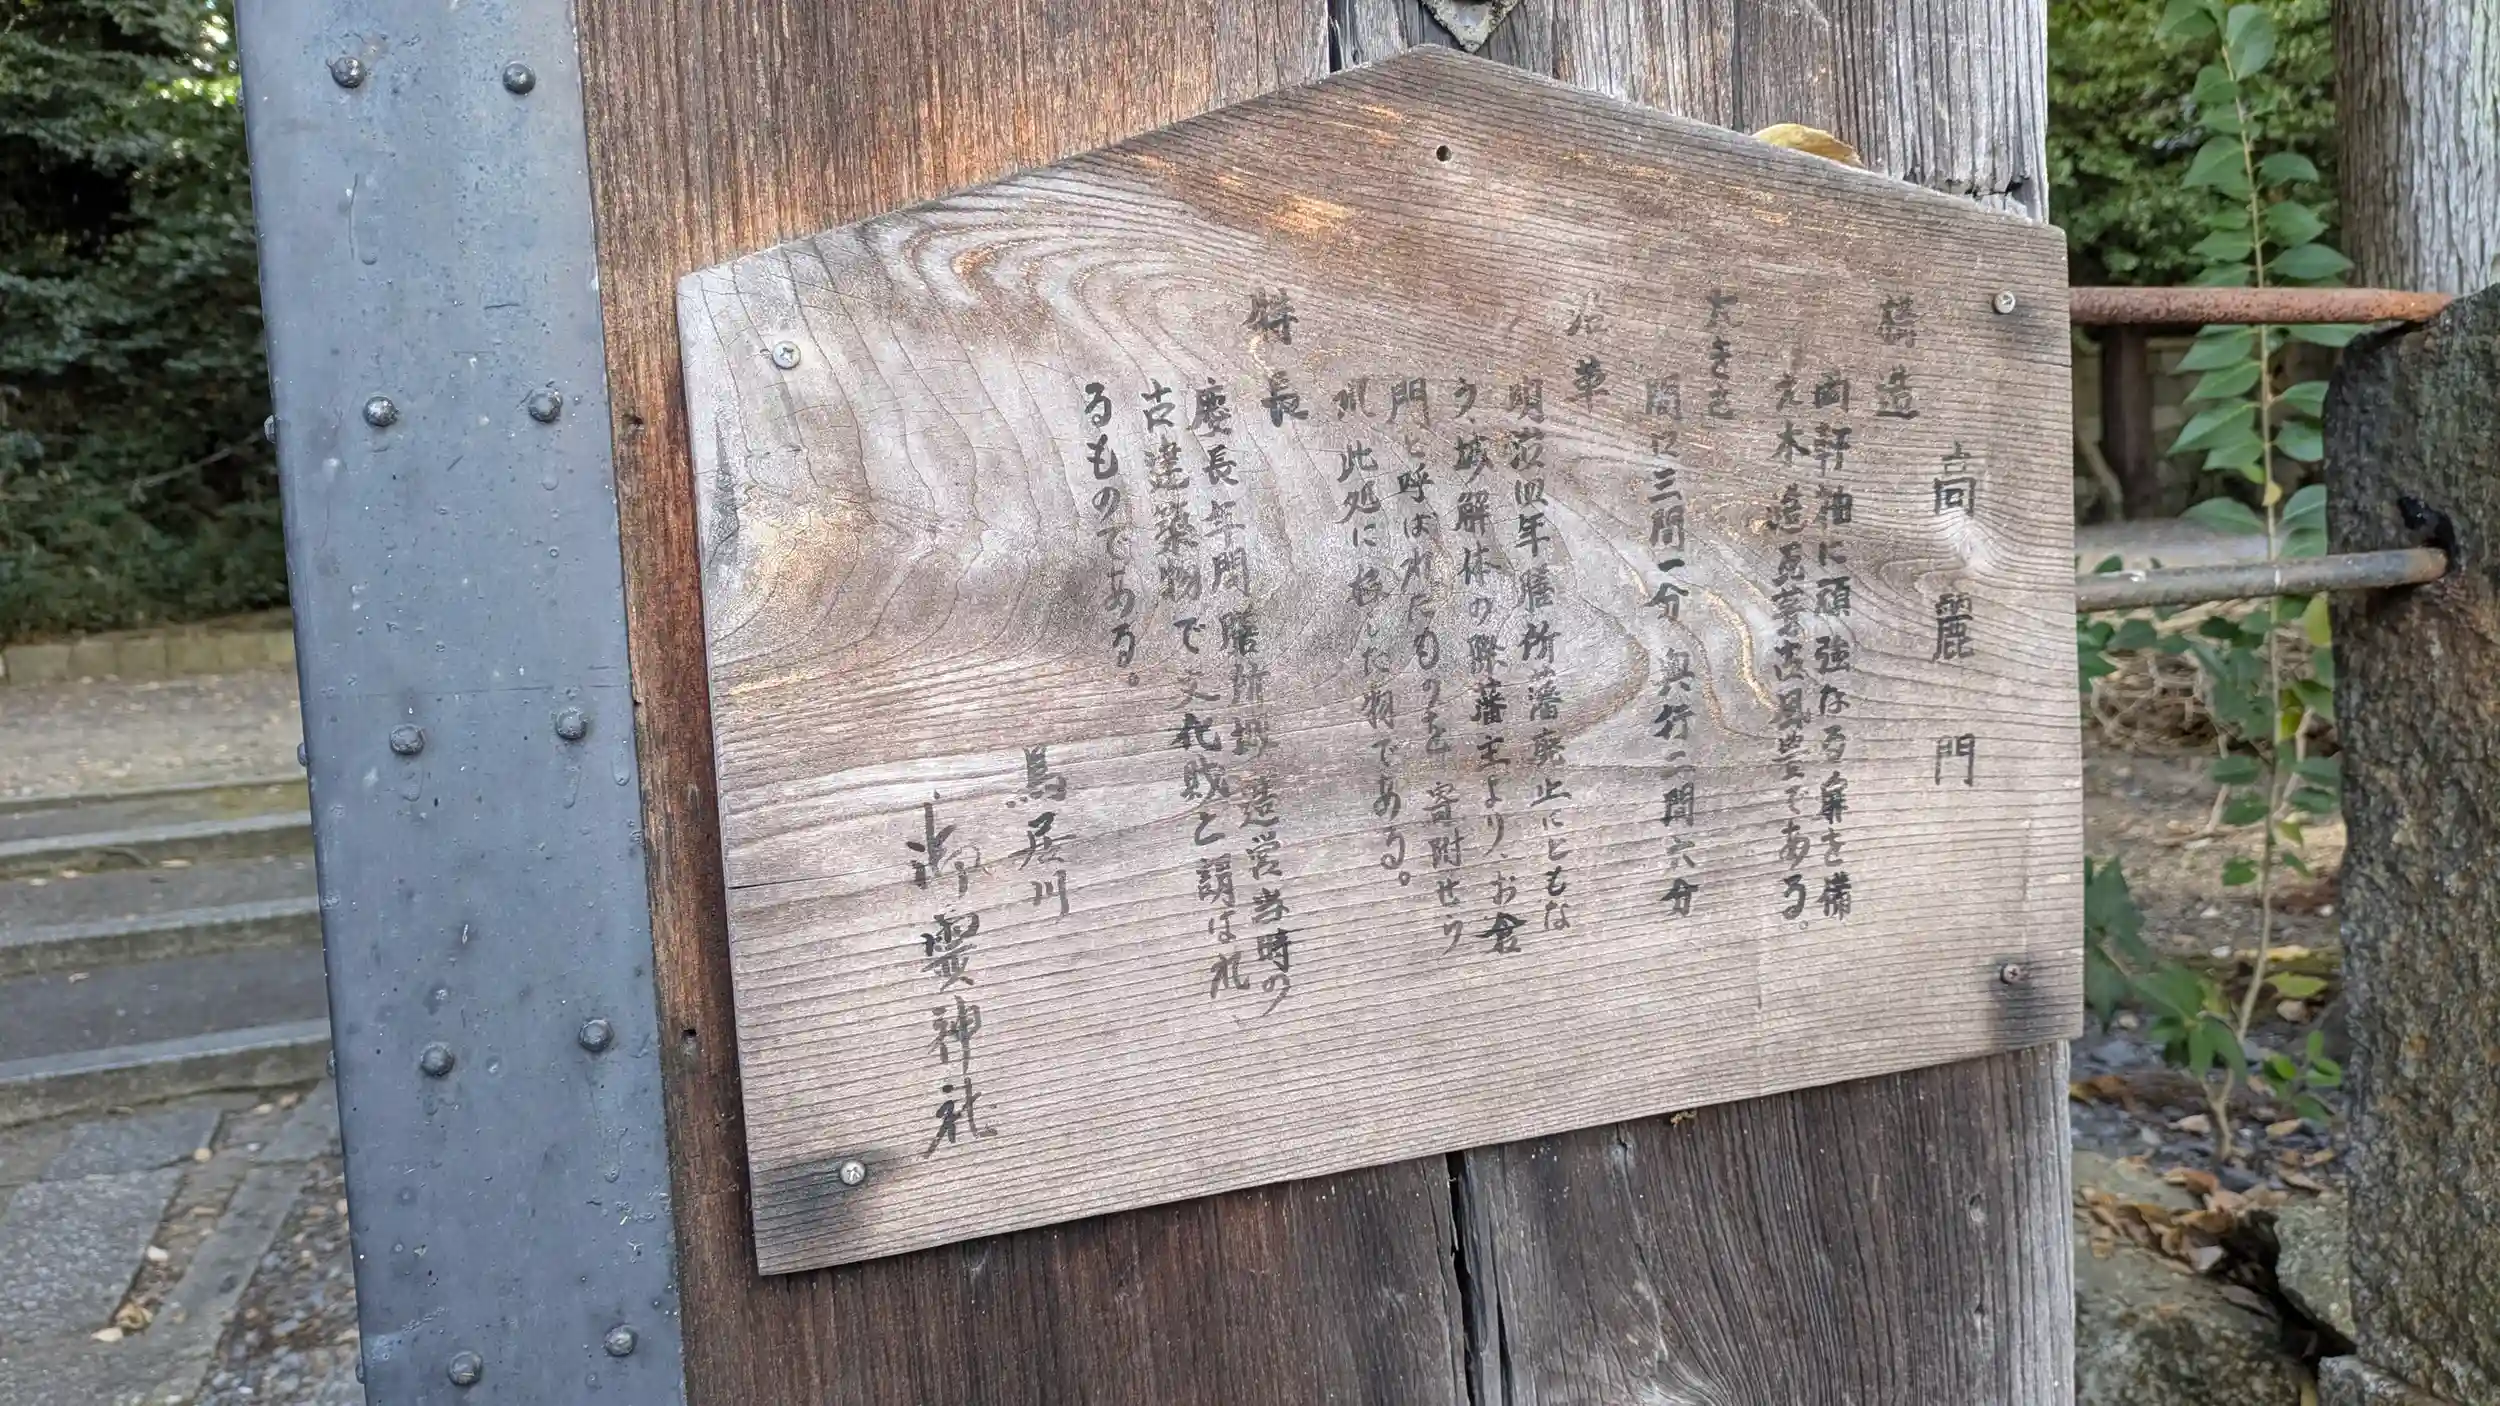 高麗門
構造
両軒袖に頑強なる扉を備
え木造瓦葺
である。
大きさ
間口三間一分 奥行二間六分
沿革
明治四年膳所藩廃止にともな
う、城解体の際藩主より、お倉
門と呼ばれたものを寄附せら
れ 此処に移した物である。
特長
慶長年間膳所城造営当時の
古建築物で文化財と謂はれ
るものである。
鳥居川
御霊神社